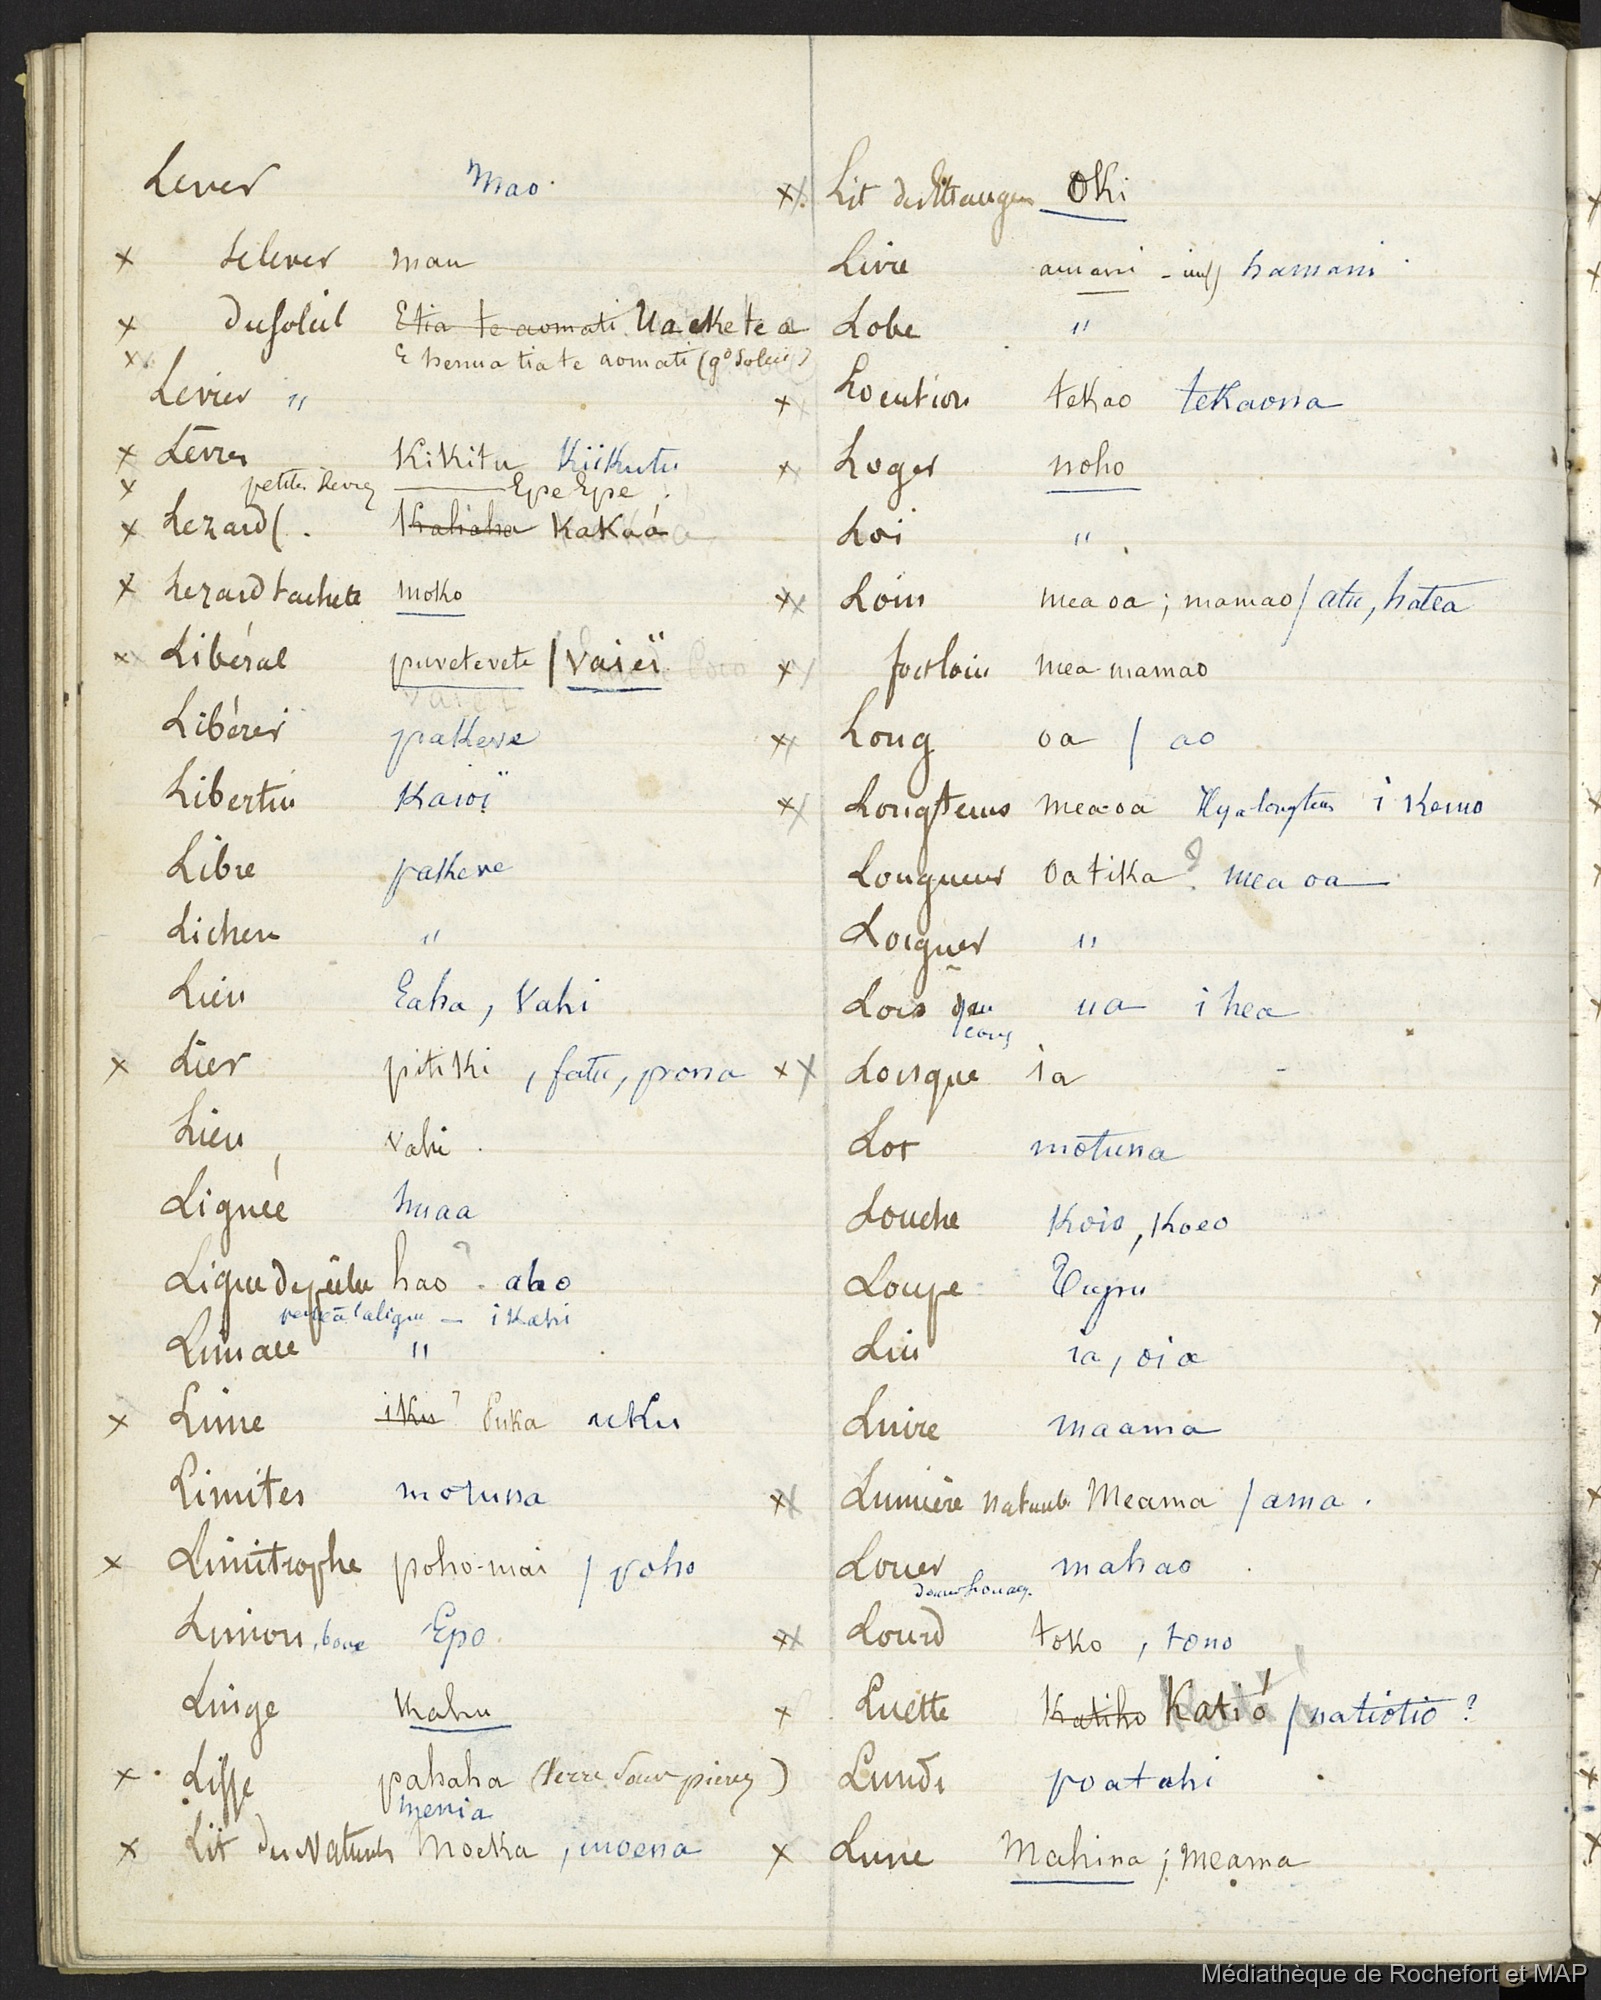 Lever Mao
× Se lever mau
× Du Soleil Etia te aomati Ua eke te a
× E henua tia te aomati (gd Soleil)
Levier "
× Lèvres Kikitu Kiikutu
× petites levres Epe Epe
× Lezard (. Kahaha Kakaá
× Lezard tacheté moko
× Libéral puvetevete / Vaieï
Libérer pakeve
Libertin Kaioï
Libre pakeve
Lichen "
Lien Eaha, Vahi
× Lier pitiki, fatu, prona
Lieu, vahi.
Lignée huaa
Ligne de pêche hao? . aho
pêche à la ligne — i Kahi
Limace "
× Lime iku? Puka uku
Limites motuna
× Limitrophe poho-mai / poho
Limon, boue Epo
Linge Kahu
× Lisse pahaha (terre sans pierres)
menia
× Lit des Naturels Moeka, moena
×× Lit des Etrangers Oki
Livre amani - hamani
Lobe "
× Locution tekao tekaona
× Loger noho
Loi "
×× Loin mea oa ; mamao / atu, hatea
× fort loin mea mamao
×× Long oa / ao
×× Longtems mea oa Il y a longtems i Kemo
Longueur oa tika? mea oa
Lorgner "
Lors ua i hea
×× Lorsque ia
Lot motuna
Louche Koio, Koeo
Loupe Tupu
Lui ia, oia
Luire maama
×× Lumière naturelle Meama / ama.
Louer mahao
×× Lourd toko, tono
× Luette Katiho Katió / natiotio ?
Lundi poatahi
× Lune Mahina ; meama
Médiathèque de Rochefort et MAP